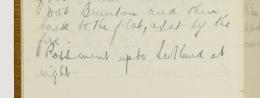 took Brunton and then
back to the flat, & sat by the
fire.
Ross went up to Scotland at
night.